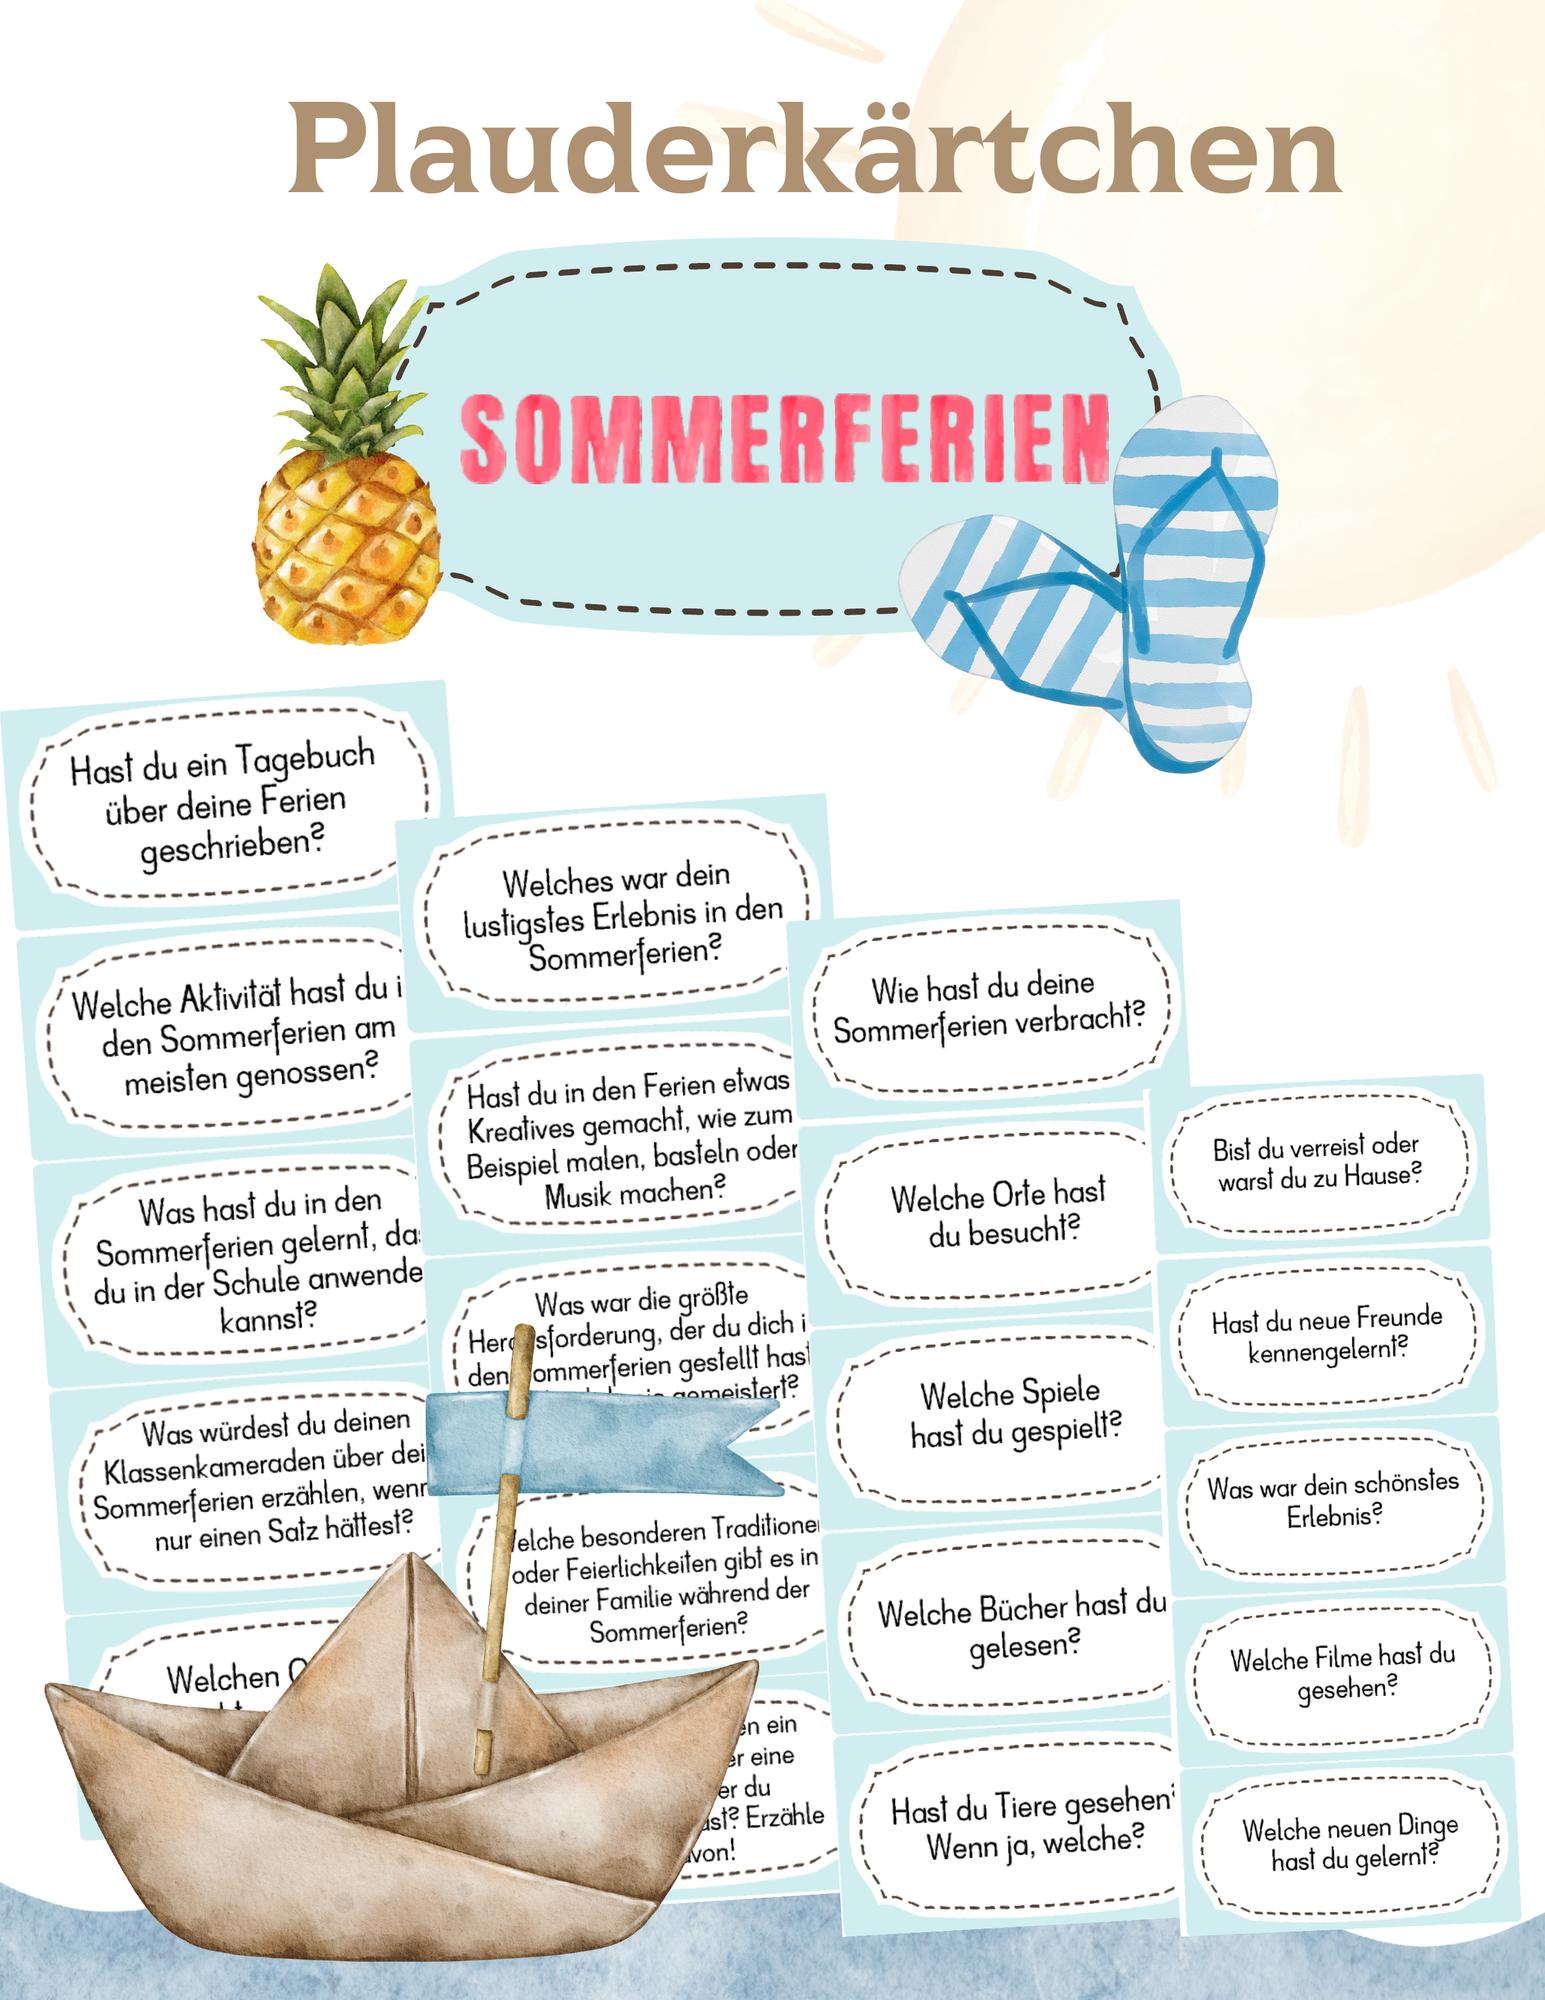 Plauderkärtchen
SOMMERFERIEN
Hast du ein Tagebuch
über deine Ferien
geschrieben?
Welche Aktivität hast du i
den Sommerferien am
meisten genossen?
Was hast du in den
Sommerferien gelernt, das
du in der Schule anwende
kannst?
Was würdest du deinen
Klassenkameraden über dei
Sommerferien erzählen, wenn
nur einen Satz hättest?
Welchen
Welches war dein
lustigstes Erlebnis in den
Sommerferien?
Hast du in den Ferien etwas
Kreatives gemacht, wie zum
Beispiel malen, basteln oder
Musik machen?
Was war die größte
Herausforderung, der du dich i
den Sommerferien gestellt hast
gemeistert?
Welche besonderen Traditionen
oder Feierlichkeiten gibt es in
deiner Familie während der
Sommerferien?
ein
eine
du
Erzähle
Wie hast du deine
Sommerferien verbracht?
Welche Orte hast
du besucht?
Welche Spiele
hast du gespielt?
Welche Bücher hast du
gelesen?
Hast du Tiere gesehen?
Wenn ja, welche?
Bist du verreist oder
warst du zu Hause?
Hast du neue Freunde
kennengelernt?
Was war dein schönstes
Erlebnis?
Welche Filme hast du
gesehen?
Welche neuen Dinge
hast du gelernt?